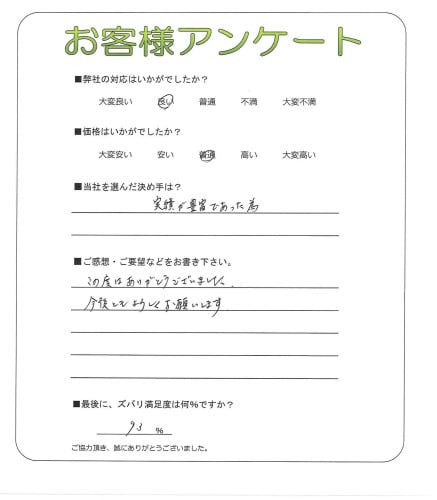 お客様アンケート
■弊社の対応はいかがでしたか？
大変良い 良い 普通 不満 大変不満
■価格はいかがでしたか？
大変安い 安い 普通 高い 大変高い
■当社を選んだ決め手は？
実績が豊富であった為
■ご感想・ご要望などをお書き下さい。
この度はありがとうございました。
今後ともよろしくお願いします
■最後に、ズバリ満足度は何％ですか？
93 ％
ご協力頂き、誠にありがとうございました。